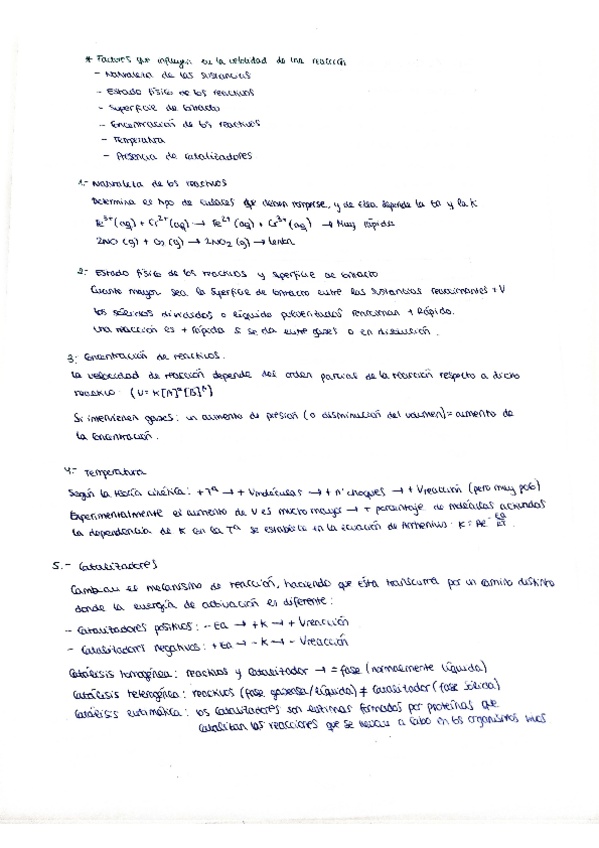 * Factores que influyen en la velocidad de una reacción
- Naturaleza de las sustancias
- Estado físico de los reactivos
- Superficie de contacto
- Concentración de los reactivos
- Temperatura
- Presencia de catalizadores
1.- Naturaleza de los reactivos
Determina el tipo de enlaces que deben romperse, y de ella depende la Ea y la K
Fe³⁺(aq) + Cr²⁺(aq) → Fe²⁺(aq) + Cr³⁺(aq) → Muy rápida
2NO (g) + O₂ (g) → 2NO₂ (g) → Lenta
2.- Estado físico de los reactivos y superficie de contacto
Cuanto mayor sea la superficie de contacto entre las sustancias reaccionantes = V
Los sólidos divididos o líquido pulverizados reaccionan + rápido.
Una reacción es + rápida si se da entre gases o en disolución.
3.- Concentración de reactivos.
La velocidad de reacción depende del orden parcial de la reacción respecto a dicho
reactivo. (V = K[A]ᵃ[B]ᵇ)
Si intervienen gases: un aumento de presión (o disminución del volumen) = aumento de
la concentración.
4.- Temperatura
Según la teoría cinética: + Tª → + Vmoléculas → + nº choques → + Vreacción (pero muy poco)
Experimentalmente el aumento de V es mucho mayor → + porcentaje de moléculas activadas
la dependencia de K con la Tª se establece en la ecuación de Arrhenius. K = Ae^-Ea/RT.
5.- Catalizadores
Cambian el mecanismo de reacción, haciendo que ésta transcurra por un camino distinto
donde la energía de activación es diferente:
- Catalizadores positivos: - Ea → + K → + Vreacción
- Catalizadores negativos: + Ea → - K → - Vreacción
Catálisis homogénea: reactivos y catalizador → = fase (normalmente líquida)
Catálisis heterogénea: reactivos (fase gaseosa/líquida) ≠ catalizador (fase sólida)
Catálisis enzimática: los catalizadores son enzimas formados por proteínas que
catalizan las reacciones que se llevan a cabo en los organismos vivos